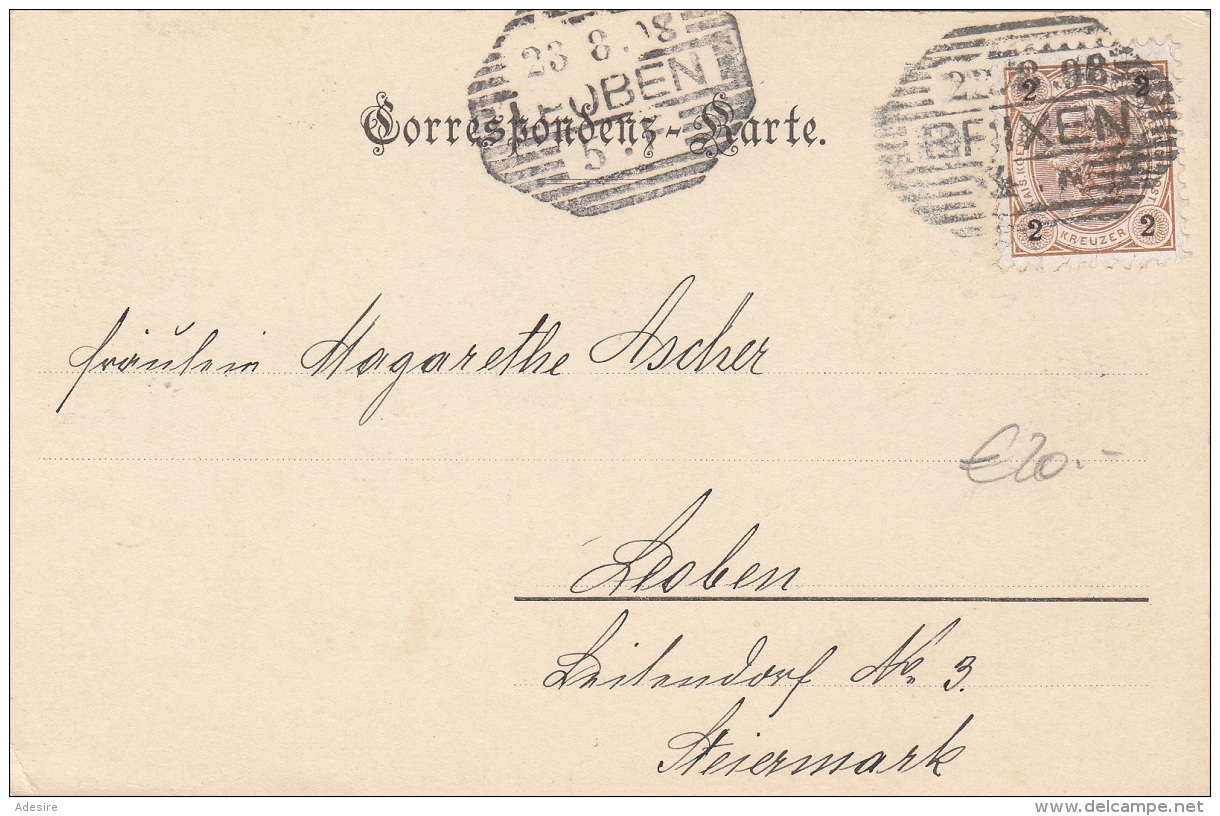 23 8 98
LEOBEN
5
22 8 98
BRIXEN
2 2
2 KREUZER 2
Correspondenz-Karte.
Fräulein Magarethe Ascher
€ 20.-
Leoben
Leitendorf No 3.
Steiermark
Adesire
delcampe.net